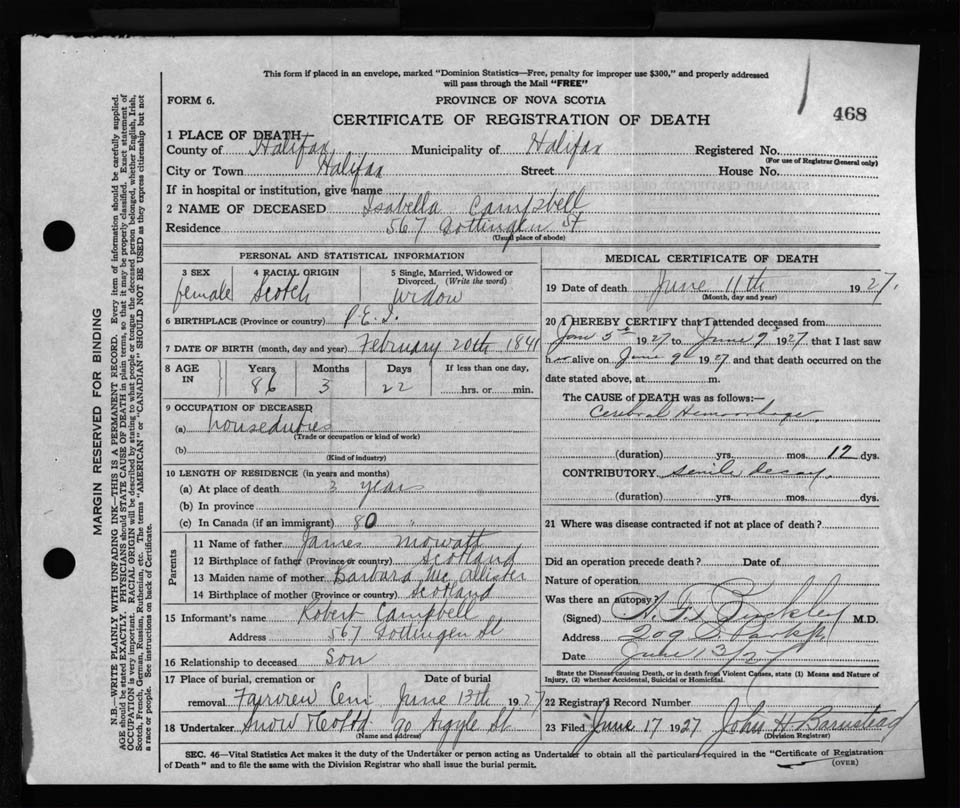 This form if placed in an envelope, marked "Dominion Statistics—Free, penalty for improper use $300," and properly addressed
will pass through the Mail "FREE"
FORM 6.
PROVINCE OF NOVA SCOTIA
468
CERTIFICATE OF REGISTRATION OF DEATH
1 PLACE OF DEATH—
County of Halifax Municipality of Halifax Registered No.
(For use of Registrar General only)
City or Town Halifax Street House No.
If in hospital or institution, give name
2 NAME OF DECEASED Isabella Campbell
Residence 567 Gottingen St
(Usual place of abode)
PERSONAL AND STATISTICAL INFORMATION
3 SEX 4 RACIAL ORIGIN 5 Single, Married, Widowed or
Divorced. (Write the word)
female Scotch Widow
6 BIRTHPLACE (Province or country) P.E.I.
7 DATE OF BIRTH (month, day and year) February 20th 1841
8 AGE IN Years Months Days If less than one day,
86 3 22 hrs. or min.
9 OCCUPATION OF DECEASED
(a) houseduties
(Trade or occupation or kind of work)
(b)
(Kind of industry)
10 LENGTH OF RESIDENCE (in years and months)
(a) At place of death 3 years
(b) In province
(c) In Canada (if an immigrant) 80 "
Parents
11 Name of father James Mowatt
12 Birthplace of father (Province or country) Scotland
13 Maiden name of mother Barbara McAllister
14 Birthplace of mother (Province or country) Scotland
15 Informant's name Robert Campbell
Address 567 Gottingen St
16 Relationship to deceased Son
17 Place of burial, cremation or Date of burial
removal Fairview Cem June 13th 1927
18 Undertaker Snow & Co Ltd 90 Argyle St
(Name and address)
MEDICAL CERTIFICATE OF DEATH
19 Date of death June 11th 1927.
(Month, day and year)
20 I HEREBY CERTIFY that I attended deceased from
1927 to June 9 1927 that I last saw
h alive on June 9 1927 and that death occurred on the
date stated above, at m.
The CAUSE of DEATH was as follows:—
Cerebral Hemorrhage
(duration) yrs. mos. 12 dys.
CONTRIBUTORY senile decay
(duration) yrs. mos. dys.
21 Where was disease contracted if not at place of death?
Did an operation precede death? Date of
Nature of operation
Was there an autopsy?
(Signed) M.D.
Address
Date June 13/27
State the Disease causing Death, or in death from Violent Causes, state (1) Means and Nature of
Injury, (2) whether Accidental, Suicidal or Homicidal.
22 Registrar's Record Number
23 Filed June 17 1927 John H Barnstead
(Division Registrar)
SEC. 46—Vital Statistics Act makes it the duty of the Undertaker or person acting as Undertaker to obtain all the particulars required in the "Certificate of Registration
of Death" and to file the same with the Division Registrar who shall issue the burial permit.
(OVER)
MARGIN RESERVED FOR BINDING
N.B.—WRITE PLAINLY WITH UNFADING INK—THIS IS A PERMANENT RECORD. Every item of information should be carefully supplied.
AGE should be stated EXACTLY. PHYSICIANS should STATE CAUSE OF DEATH in plain terms, so that it may be properly classified. Exact statement of
OCCUPATION is very important. RACIAL ORIGIN will be described by stating to what people or tongue the deceased person belonged, whether English, Irish,
Scotch, French, German, Russian, Ruthenian, etc. The terms "AMERICAN" or "CANADIAN" SHOULD NOT BE USED as they express citizenship but not
a race or people. See instructions on back of Certificate.